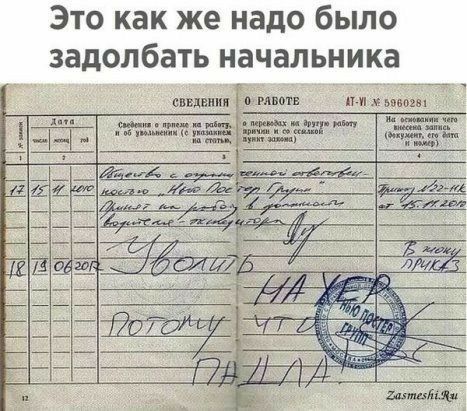 Это как же надо было
задолбать начальника
СВЕДЕНИЯ О РАБОТЕ АТ-VI № 5960281
№ записи
Дата
Сведения о приеме на работу, о переводах на другую работу
и об увольнении (с указанием причин и со ссылкой
на статью, пункт закона)
На основании чего
внесена запись
(документ, его дата
и номер)
число месяц год
1 2 3 4
Общество с ограниченной ответствен-
17 15 11 2010 ностью "Нью Постер Групп" Приказ №22-НК
Принят на работу в должности от 15.11.2010
водителя-экспедитора
18 19 06 2017 Уволить В жопу
ПРИКАЗ
НАХЕР
Потому что
ПАДЛА.
НЬЮ ПОСТЕР
ГРУПП
12
Zasmeshi.Ru